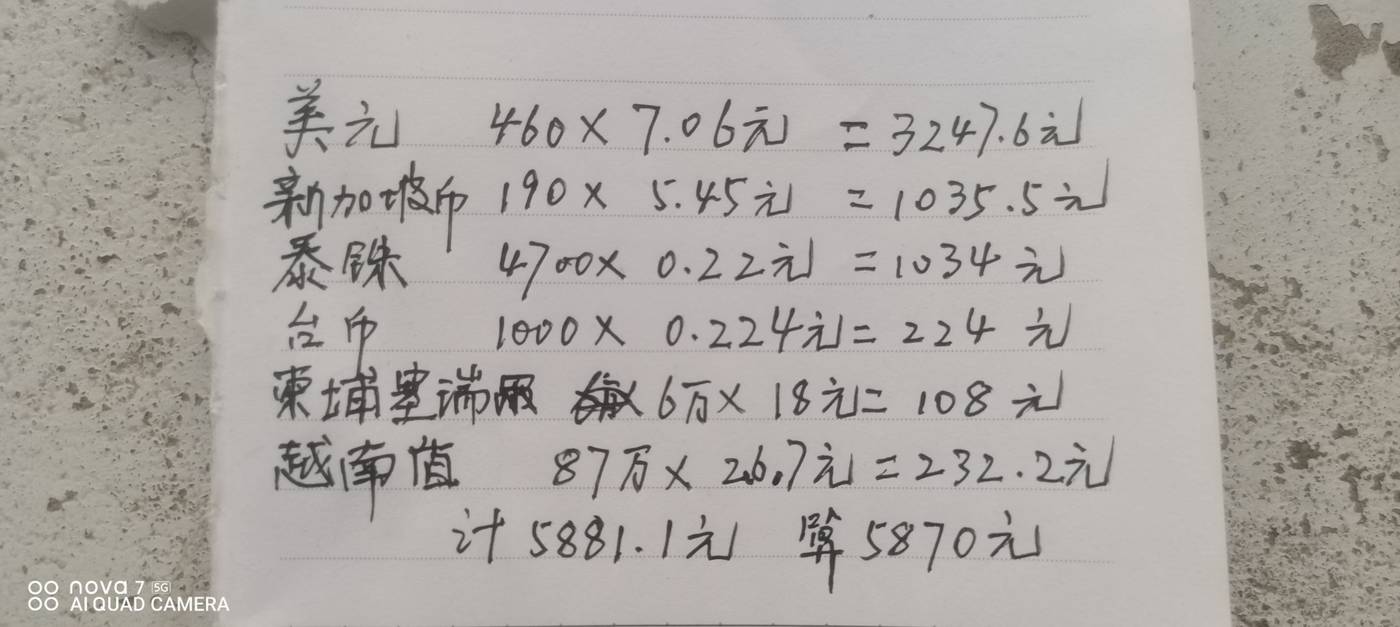 美元 460× 7.06元 =3247.6元
新加坡币 190× 5.45元 =1035.5元
泰铢 4700× 0.22元 =1034元
台币 1000× 0.224元= 224 元
柬埔寨瑞 6万× 18元= 108 元
越南值 87万× 26.7元=232.2元
计5881.1元 算5870元
nova 7 5G
AI QUAD CAMERA